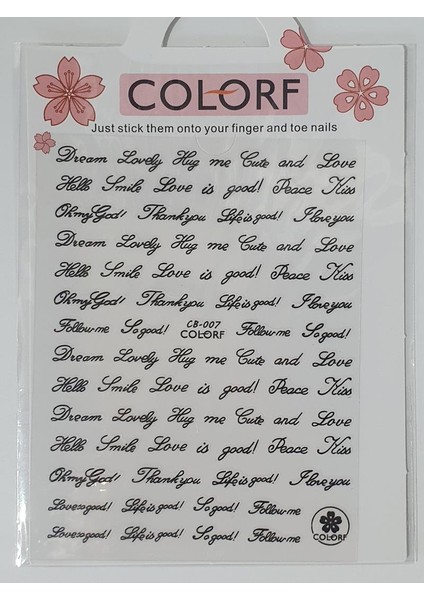 COLORF
Just stick them onto your finger and toe nails
Dream Lovely Hug me Cute and Love
Hello Smile Love is good! Peace Kiss
Oh my God! Thank you Life is good! I love you
Dream Lovely Hug me Cute and Love
Hello Smile Love is good! Peace Kiss
Oh my God! Thank you Life is good! I love you
Follow me So good! CB-007 COLORF Follow me So good!
Dream Lovely Hug me Cute and Love
Hello Smile Love is good! Peace Kiss
Dream Lovely Hug me Cute and Love
Hello Smile Love is good! Peace Kiss
Oh my God! Thank you Life is good! I love you
Love so good! Life is good! So good! Follow me
Love so good! Life is good! So good! Follow me
COLORF